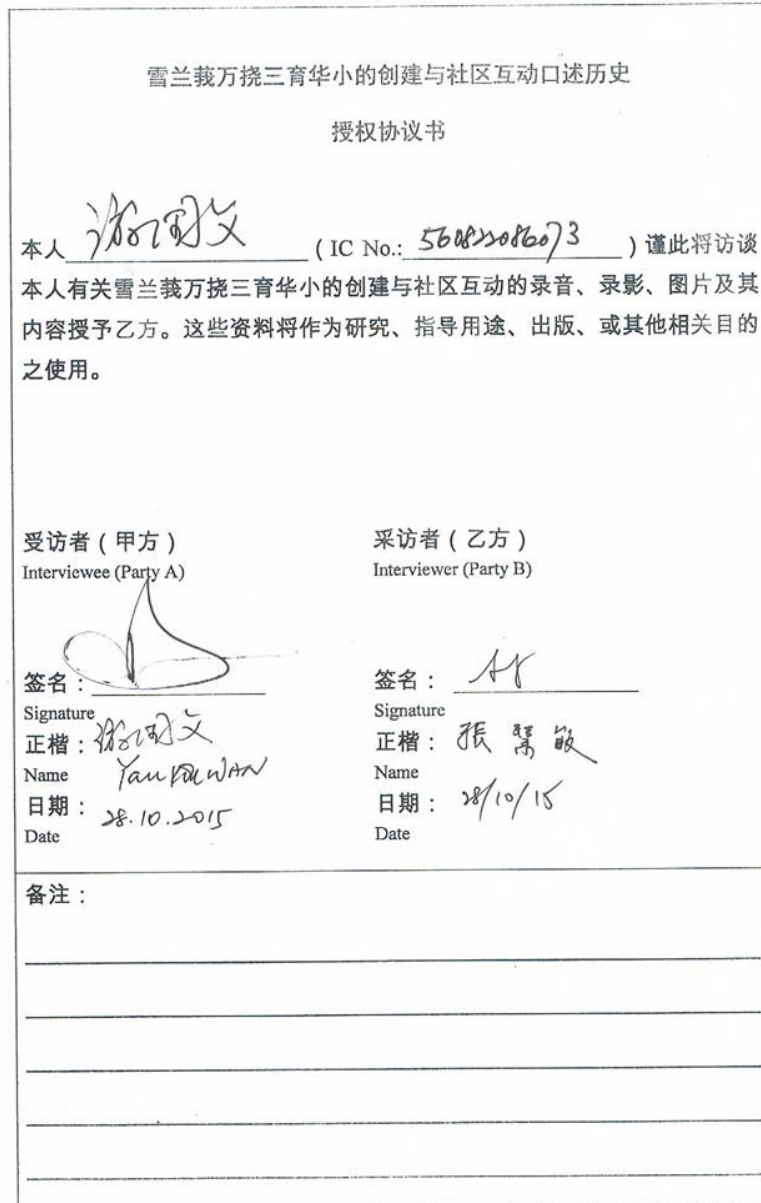 雪兰莪万挠三育华小的创建与社区互动口述历史
授权协议书
本人 游国文 ( IC No.: 560822086073 ) 谨此将访谈
本人有关雪兰莪万挠三育华小的创建与社区互动的录音、录影、图片及其
内容授予乙方。这些资料将作为研究、指导用途、出版、或其他相关目的
之使用。
受访者（甲方）
Interviewee (Party A)
签名：
Signature
正楷：游国文
Name Yau WAN
日期：28.10.2015
Date
采访者（乙方）
Interviewer (Party B)
签名：
Signature
正楷：張 敏
Name
日期：28/10/15
Date
备注：